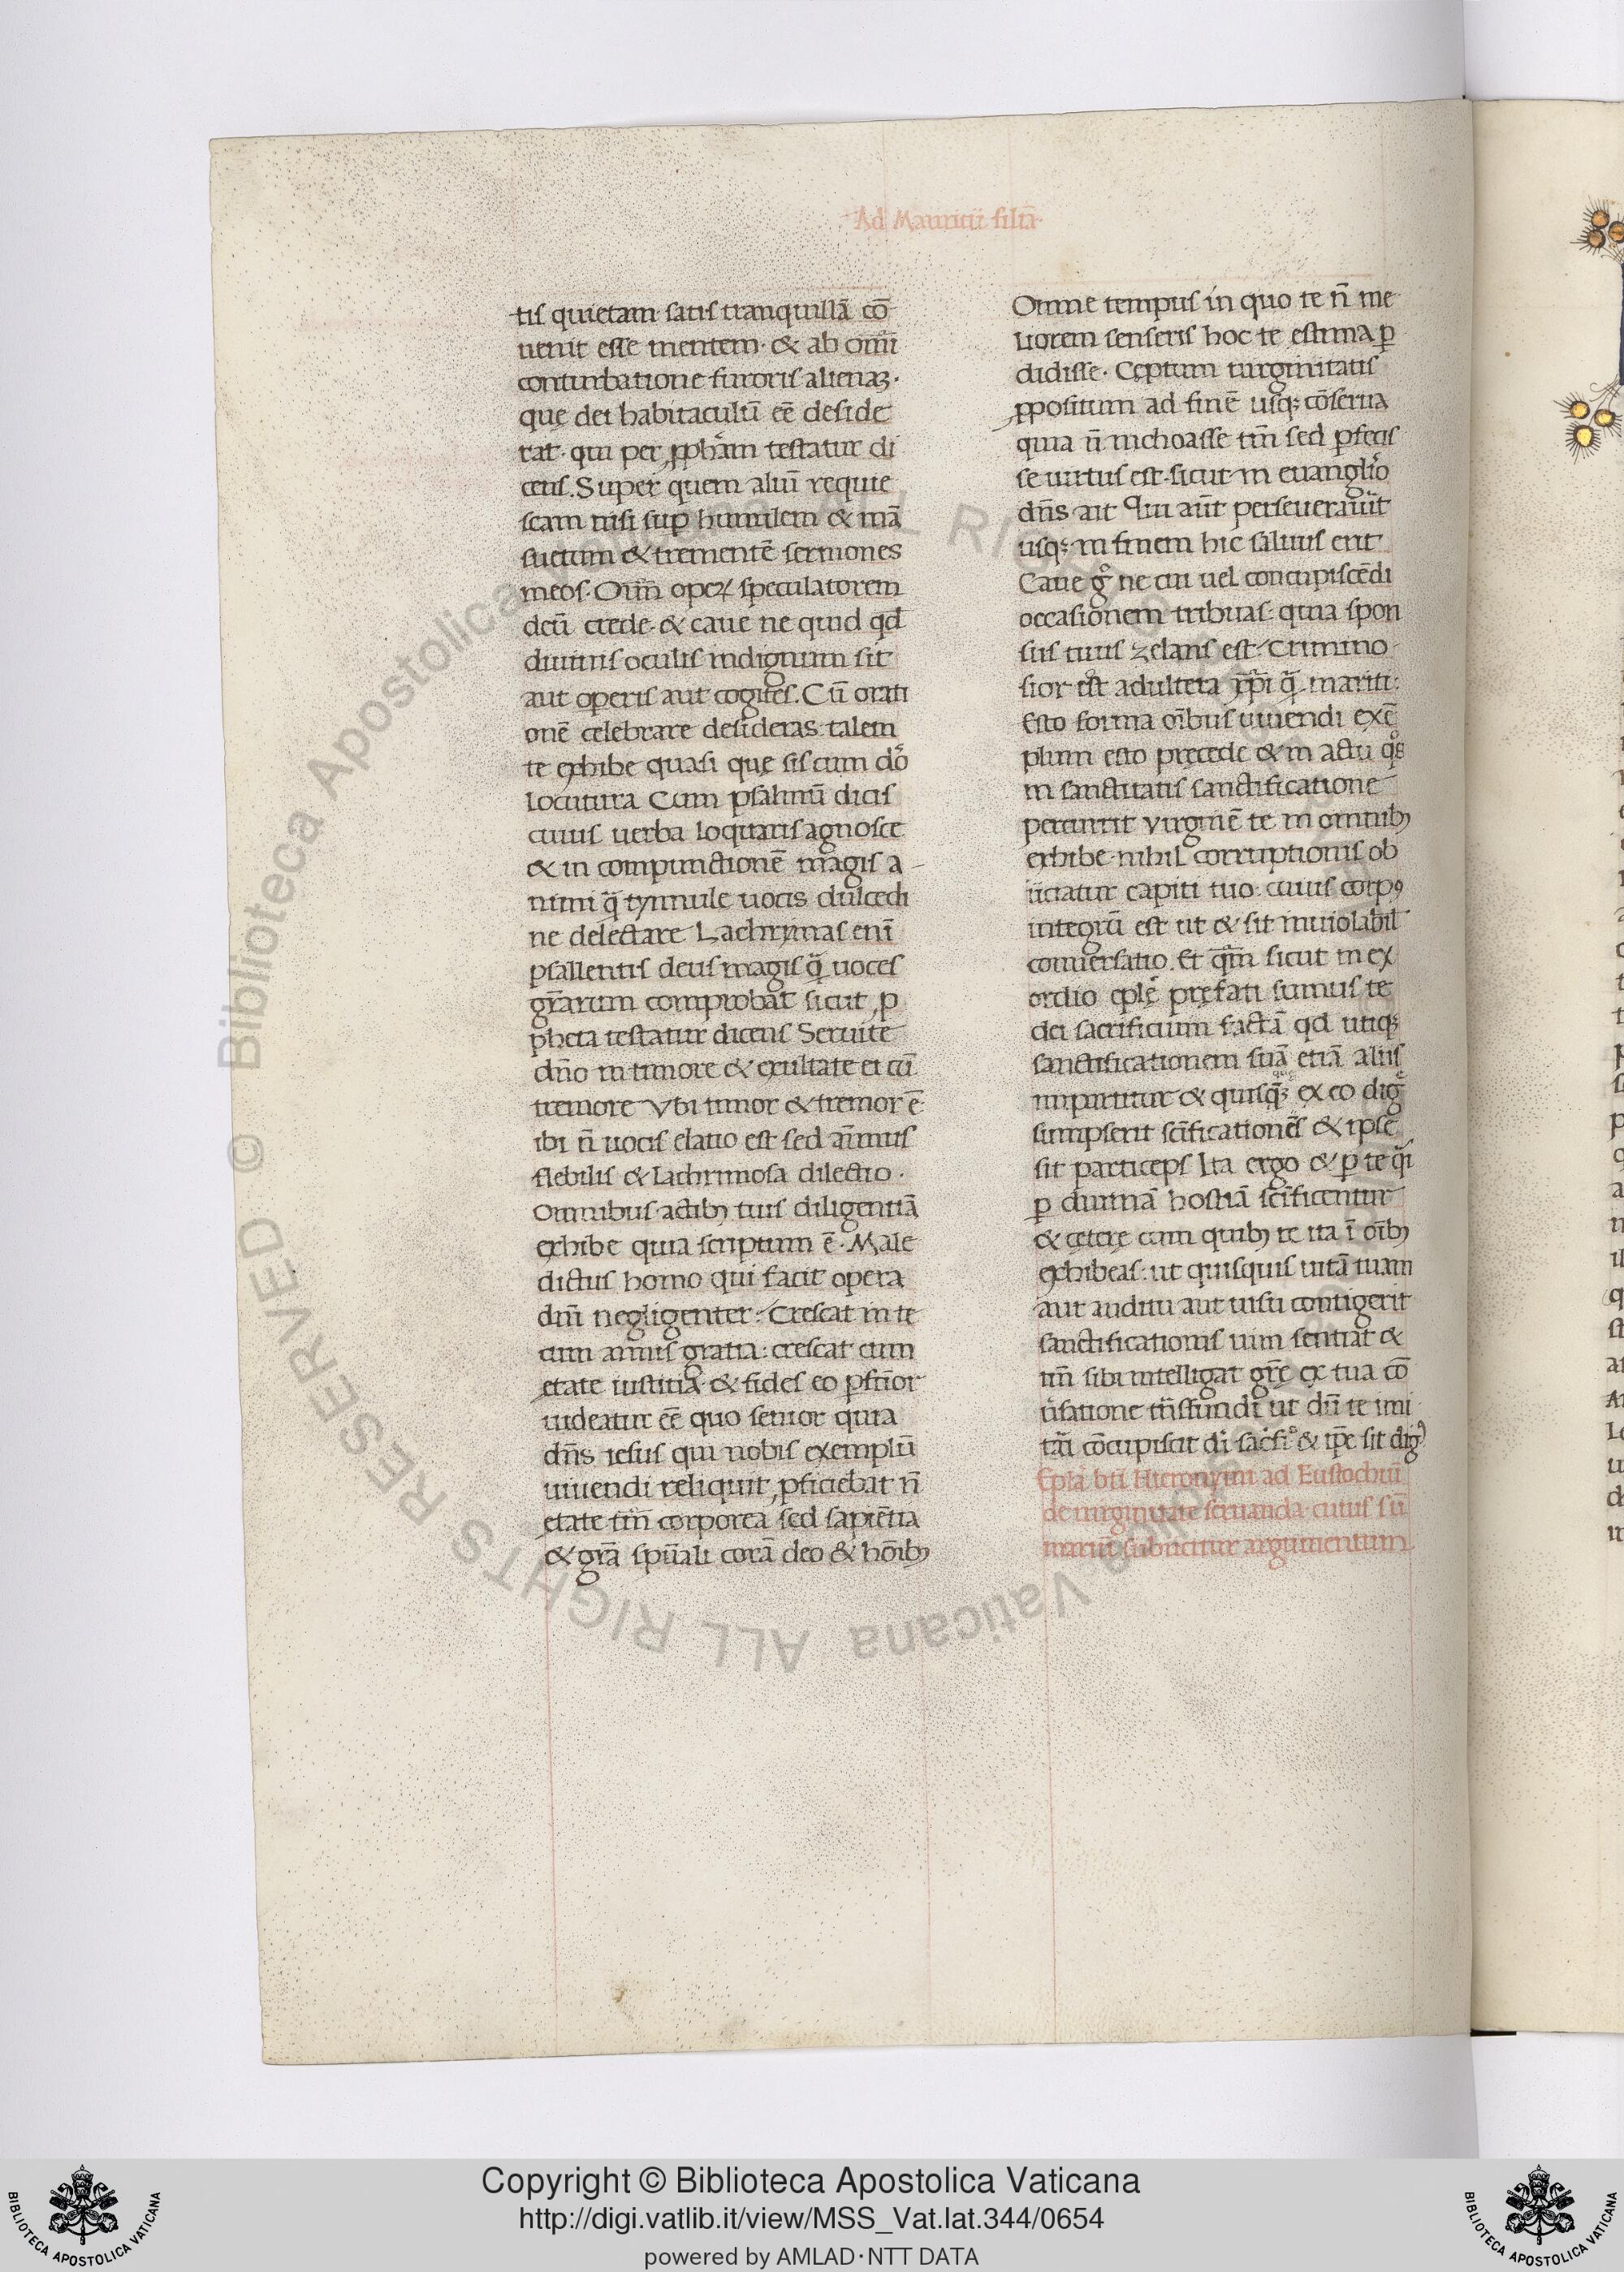 Ad Mauritii filiā
tis quietam satis tranquillā cō
uenit esse mentem · & ab om̄i
conturbatione furoris alienaʒ ·
quę dei habitaculū eē deside
rat · qui per ꝓpham testatur di
cens. Super quem aliū requie
scam nisi suꝑ humilem & mā
suetum & trementē sermones
meos. Om̄ oꝑeꝝ speculatorem
deū crede · & caue ne quid qđ
diuinis oculis indignum sit
aut operis aut cogites. Cū orati
onē celebrare desideras : talem
te exhibe quasi quę sis cum dō
locutura Cum psalmū dicis
cuius uerba loquaris agnosce
& in compunctionē magis a
nimi q̄ tynnule uocis dulcedi
ne delectare Lachrymas enī
psallentis deus magis q̄ uoces
gr̄arum comprobat sicut ꝓ
pheta testatur dicens Seruite
dn̄o in timore & exultate ei cū
tremore Vbi timor & tremor ē
ibi n̄ uocis elatio est sed an̄imus
flebilis & lachrimosa dilectio ·
Omnibus actibꝫ tuis diligentiā
exhibe quia scriptum ē · Male
dictus homo qui facit opera
dn̄i negligenter : Crescat in te
cum annis gratia : crescat cum
etate iustitia · & fides eo ꝑfc̄ior
uideatur eē quo senior quia
dn̄s iesus qui nobis exemplū
uiuendi reliquit ꝓficiebat n̄
etate tm̄ corporea sed sapiētia
& gr̄a spūali corā deo & hōibꝫ
Omne tempus in quo te n̄ me
liorem senseris hoc te estima ꝑ
didisse · Cęptum uirginitatis
ꝓpositum ad finē usqꝫ cōserua
quia n̄ inchoasse tm̄ sed ꝑfecis
se uirtus est · sicut in euanglio
dn̄s ait Qui aūt perseuerauit
usqꝫ in finem hic saluus erit
Caue gͦ ne cui uel concupiscēdi
occasionem tribuas : quia spon
sus tuus zelans est · Crimino
sior est adultera xp̄i q̄ mariti :
Esto forma oībus uiuendi exē
plum esto pręcede & in actu qͦs
in sanctitatis sanctificatione
percurrit Virginē te in omnibꝫ
exhibe · nihil corruptionis ob
iiciatur capiti tuo : cuius corpꝰ
integrū est ut & sit inuiolabil
conuersatio. Et qm̄ sicut in ex
ordio eplę pręfati sumus te
dei sacrificium factā qđ utiqꝫ
sanctificationem suā etiā aliis
impartitur & quisqꝫ ex eo dig
sumpserit scīficationēs & ipse
sit particeps Ita ergo & ꝑ te q̄i
ꝑ diuinā hostiā scīficentur
& cęterę cum quibꝫ te ita ī oībꝫ
exhibeas : ut quisquis uitā tuam
aut auditu aut uisu contigerit
sanctificationis uim sentiat &
tm̄ sibi intelligat gr̄ę ex tua cō
ūsatione trāsfundi ut dū te imi
tari cōcupiscit di sac̄fi & ip̄e sit digꝰ
Epl̄a bt̄i Hieronymi ad Eustochiū
de uirginitate seruanda · cuius sū
mariū subiicitur argumentum
© Biblioteca Apostolica Vaticana ALL RIGHTS RESERVED
Copyright © Biblioteca Apostolica Vaticana
http://digi.vatlib.it/view/MSS_Vat.lat.344/0654
powered by AMLAD·NTT DATA
BIBLIOTECA APOSTOLICA VATICANA
BIBLIOTECA APOSTOLICA VATICANA